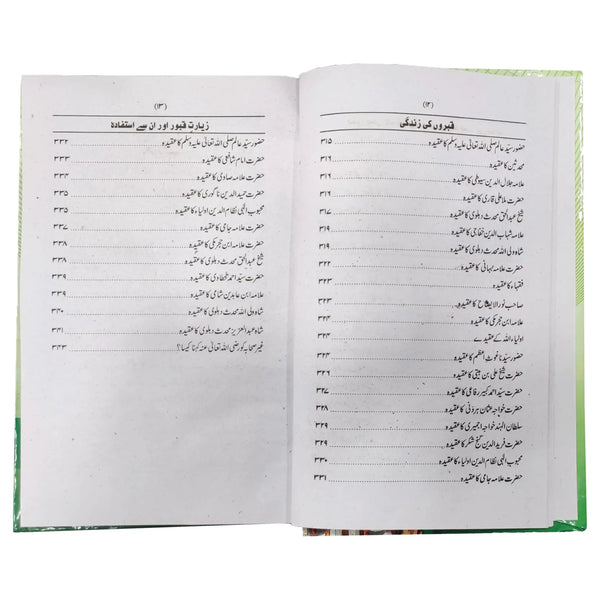 (۱۲)
قبروں کی زندگی
حضور سیّد عالم صلی اللہ تعالیٰ علیہ وسلم کا عقیدہ ۳۱۵
محدثین کا عقیدہ ۳۱۶
علامہ جلال الدین سیوطی کا عقیدہ ۳۱۶
حضرت ملا علی قاری کا عقیدہ ۳۱۶
شیخ عبدالحق محدث دہلوی کا عقیدہ ۳۱۷
علامہ شہاب الدین خفاجی کا عقیدہ ۳۱۹
شاہ ولی اللہ محدث دہلوی کا عقیدہ ۳۱۹
حضرت علامہ نبہانی کا عقیدہ ۳۲۲
فقہاء کا عقیدہ ۳۲۳
صاحب نور الایضاح کا عقیدہ ۳۲۳
علامہ ابن حجر مکی کا عقیدہ ۳۲۴
اولیاء اللہ کے عقیدے ۳۲۴
حضور سیّدنا غوث اعظم کا عقیدہ ۳۲۴
حضرت شیخ علی بن ہیتی کا عقیدہ ۳۲۶
حضرت سیّد احمد کبیر رفاعی کا عقیدہ ۳۲۷
حضرت خواجہ عثمان ہارونی کا عقیدہ ۳۲۸
سلطان الہند خواجہ اجمیری کا عقیدہ ۳۲۹
حضرت فرید الدین گنج شکر کا عقیدہ ۳۲۹
محبوب الٰہی نظام الدین اولیاء کا عقیدہ ۳۳۰
حضرت علامہ جامی کا عقیدہ ۳۳۱
(۱۳)
زیارت قبور اور ان سے استفادہ
حضور سیّد عالم صلی اللہ تعالیٰ علیہ وسلم کا عقیدہ ۳۳۲
حضرت امام شافعی کا عقیدہ ۳۳۳
حضرت علامہ صاوی کا عقیدہ ۳۳۴
حضرت حمید الدین ناگوری کا عقیدہ ۳۳۵
محبوب الٰہی نظام الدین اولیاء کا عقیدہ ۳۳۵
حضرت علامہ جامی کا عقیدہ ۳۳۷
حضرت علامہ ابن حجر مکی کا عقیدہ ۳۳۸
شیخ عبدالحق محدث دہلوی کا عقیدہ ۳۳۸
حضرت سیّد احمد طحطاوی کا عقیدہ ۳۳۹
علامہ ابن عابدین شامی کا عقیدہ ۳۳۹
شاہ ولی اللہ محدث دہلوی کا عقیدہ ۳۴۰
شاہ عبدالعزیز محدث دہلوی کا عقیدہ ۳۴۱
غیر صحابہ کو رضی اللہ تعالیٰ عنہ کہنا کیسا؟ ۳۴۳